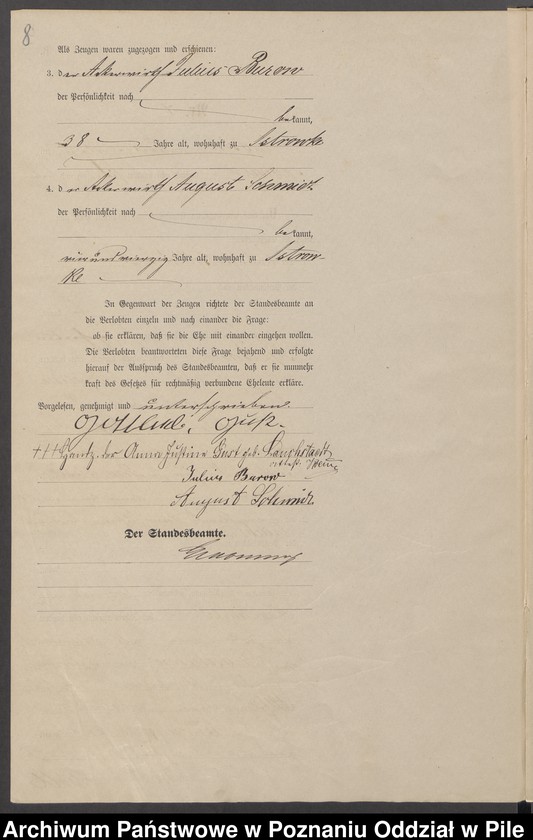 8
Als Zeugen waren zugezogen und erschienen:
3. der Ackerwirth Julius Burow
der Persönlichkeit nach
bekannt,
38 Jahre alt, wohnhaft zu Istrowke
4. der Ackerwirth August Schmidt
der Persönlichkeit nach
bekannt,
vierundvierzig Jahre alt, wohnhaft zu Istrow-
ke
In Gegenwart der Zeugen richtete der Standesbeamte an
die Verlobten einzeln und nach einander die Frage:
ob sie erklären, daß sie die Ehe mit einander eingehen wollen.
Die Verlobten beantworteten diese Frage bejahend und erfolgte
hierauf der Ausspruch des Standesbeamten, daß er sie nunmehr
kraft des Gesetzes für rechtmäßig verbundene Eheleute erkläre.
Vorgelesen, genehmigt und unterschrieben.
Gottlieb Gust.
+++ Handz. der Anna Justine Gust geb.
Julius Burow
August Schmidt
Der Standesbeamte.
Archiwum Państwowe w Poznaniu Oddział w Pile